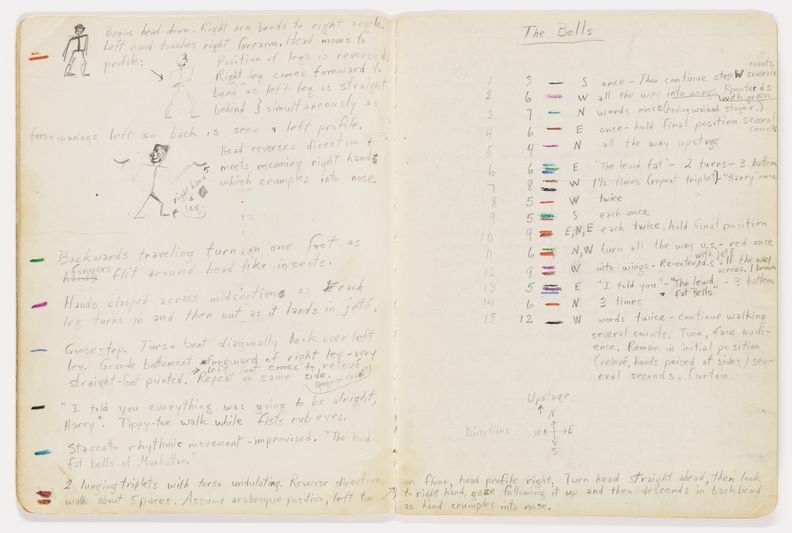 Begins head down. Right arm bends to right angle.
Left hand touches right forearm. Head moves to
profile:
Position of legs is reversed:
Right leg comes forward to
bend as left leg is straight
behind & simultaneously as
torso swings left so back is seen & left profile.
Head reverses direction &
meets incoming right hand
which crumples into nose.
right hand
& leg
Backwards traveling turn on one foot as
hands fingers flit around head like insects.
Hands clasped across midsection as each
leg turns in and then out as it lands in jeté.
Goosestep. Torso bent diagonally back over left
leg. Grande battement foreward of right leg - very
→ left foot comes to relevé
straight-foot pointed. Repeat on same side.
"I told you everything was going to be alright,
Harry". Tippy-toe walk while fists rub eyes.
Staccato rhythmic movement - improvised. "The lewd
fat bells of Manhattan."
2 lunging triplets with torso undulating. Reverse direction,
walk about 5 paces. Assume arabesque position, left toe
The Bells
1 3 S once - Then continue step W several counts
2 6 W all the way into wings. Reenter d.s. with green
3 7 N words once (having walked stage r.)
4 6 E once - hold final position several counts
5 4 N all the way upstage
6 6 E "The lewd fat" - 2 turns - 3 battem
7 8 W 1½ times (repeat triplet) - "Harry" once
8 5 W twice
9 5 S each once
10 9 E,N,E each twice, hold final position
11 6 N,W turn all the way u.s. - red once
12 9 W into wings - Re-enter d.s. with jeté all the way across. 1 brown
13 5 E "I told you" - "The lewd fat Bells" - 3 battem
14 6 N 3 times
15 12 W words twice - continue walking
several counts. Turn, face audi-
ence. Remain in initial position
(relevé, hands poised at sides) sev-
eral seconds. Curtain
Upstage
N
Directions W E
S
on floor, head profile right. Turn head straight ahead, then look
to right hand, gaze following it up and then descends in backbend
as hand crumples into nose.